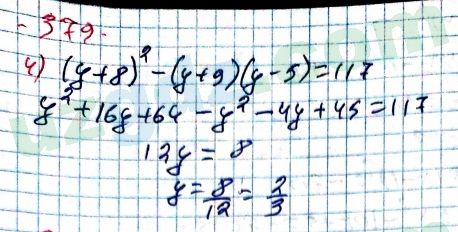 - 379 -
4) (y+8)² - (y+9)(y-5)=117
y² + 16y + 64 - y² - 4y + 45 = 117
12y = 8
y = 8/12 = 2/3